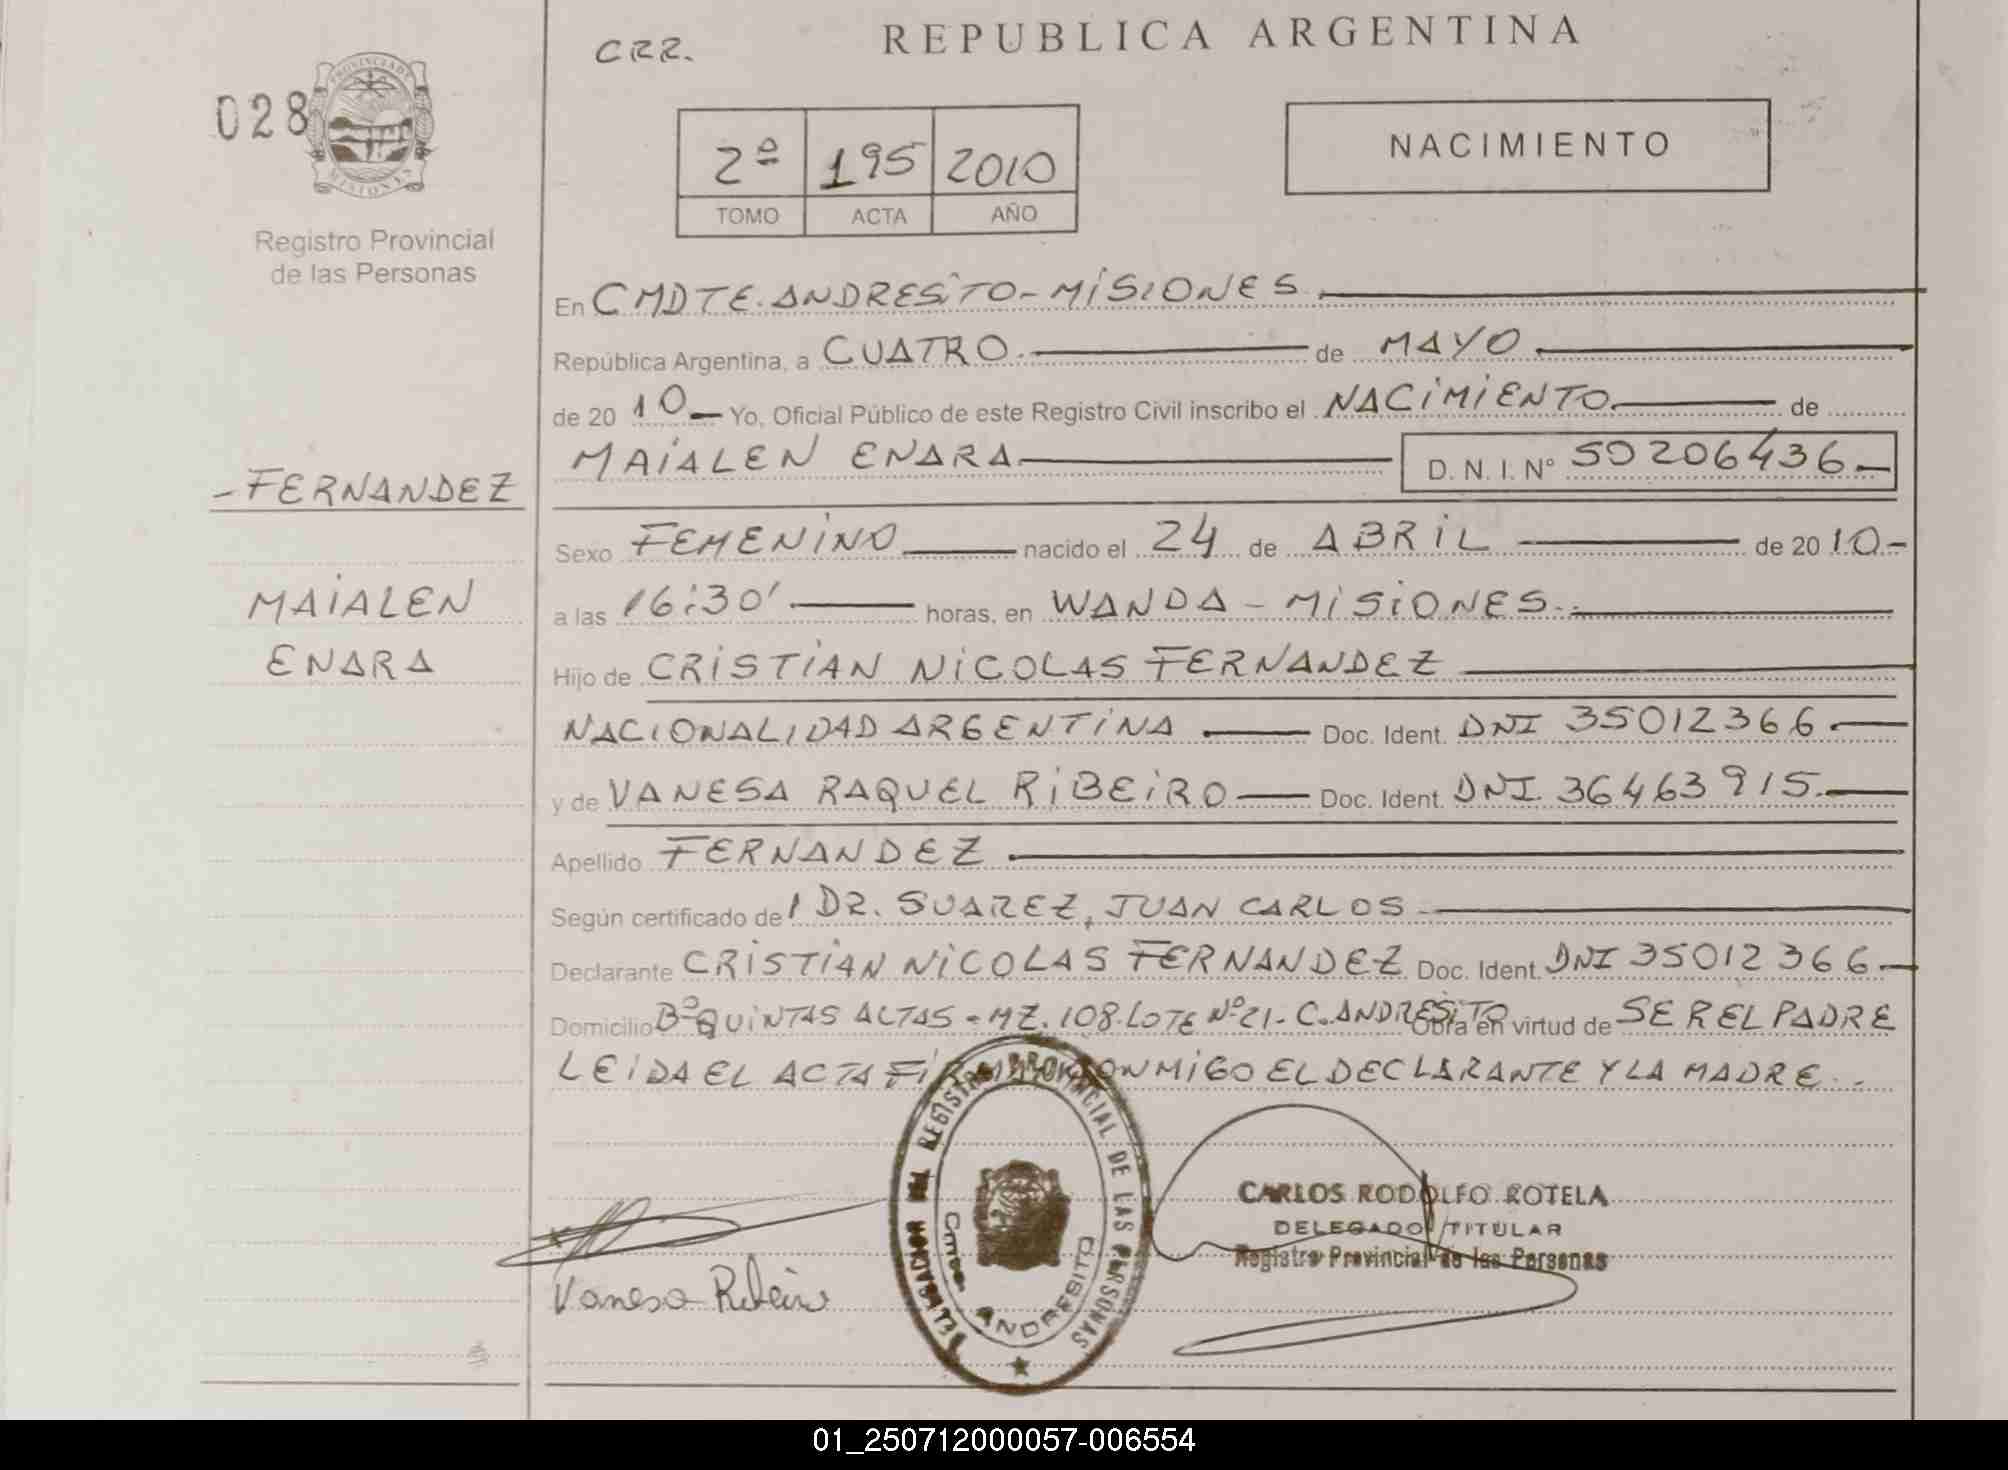 CRR.
REPUBLICA ARGENTINA
028
PROVINCIA DE
MISIONES
Registro Provincial
de las Personas
2º 195 2010
TOMO ACTA AÑO
NACIMIENTO
En CMDTE. ANDRESITO - MISIONES
República Argentina, a CUATRO. de MAYO
de 20 10 Yo, Oficial Público de este Registro Civil inscribo el NACIMIENTO de
MAIALEN ENARA D.N.I. Nº 50206436
- FERNANDEZ
MAIALEN
ENARA
Sexo FEMENINO nacido el 24 de ABRIL de 20 10-
a las 16:30' horas, en WANDA - MISIONES.
Hijo de CRISTIAN NICOLAS FERNANDEZ
NACIONALIDAD ARGENTINA Doc. Ident. DNI 35012366
y de VANESA RAQUEL RIBEIRO Doc. Ident. DNI. 36463915.
Apellido FERNANDEZ
Según certificado de DR. SUAREZ, JUAN CARLOS
Declarante CRISTIAN NICOLAS FERNANDEZ Doc. Ident. DNI 35012366
Domicilio Bº QUINTAS ALTAS - MZ. 108. LOTE Nº 21 - C. ANDRESITO Obra en virtud de SER EL PADRE
LEIDA EL ACTA CONMIGO EL DECLARANTE Y LA MADRE.
DELEGACION DEL REGISTRO PROVINCIAL DE LAS PERSONAS
ANDRESITO
CARLOS RODOLFO ROTELA
DELEGADO TITULAR
Registro Provincial de las Personas
Vanesa Ribeiro
01_250712000057-006554